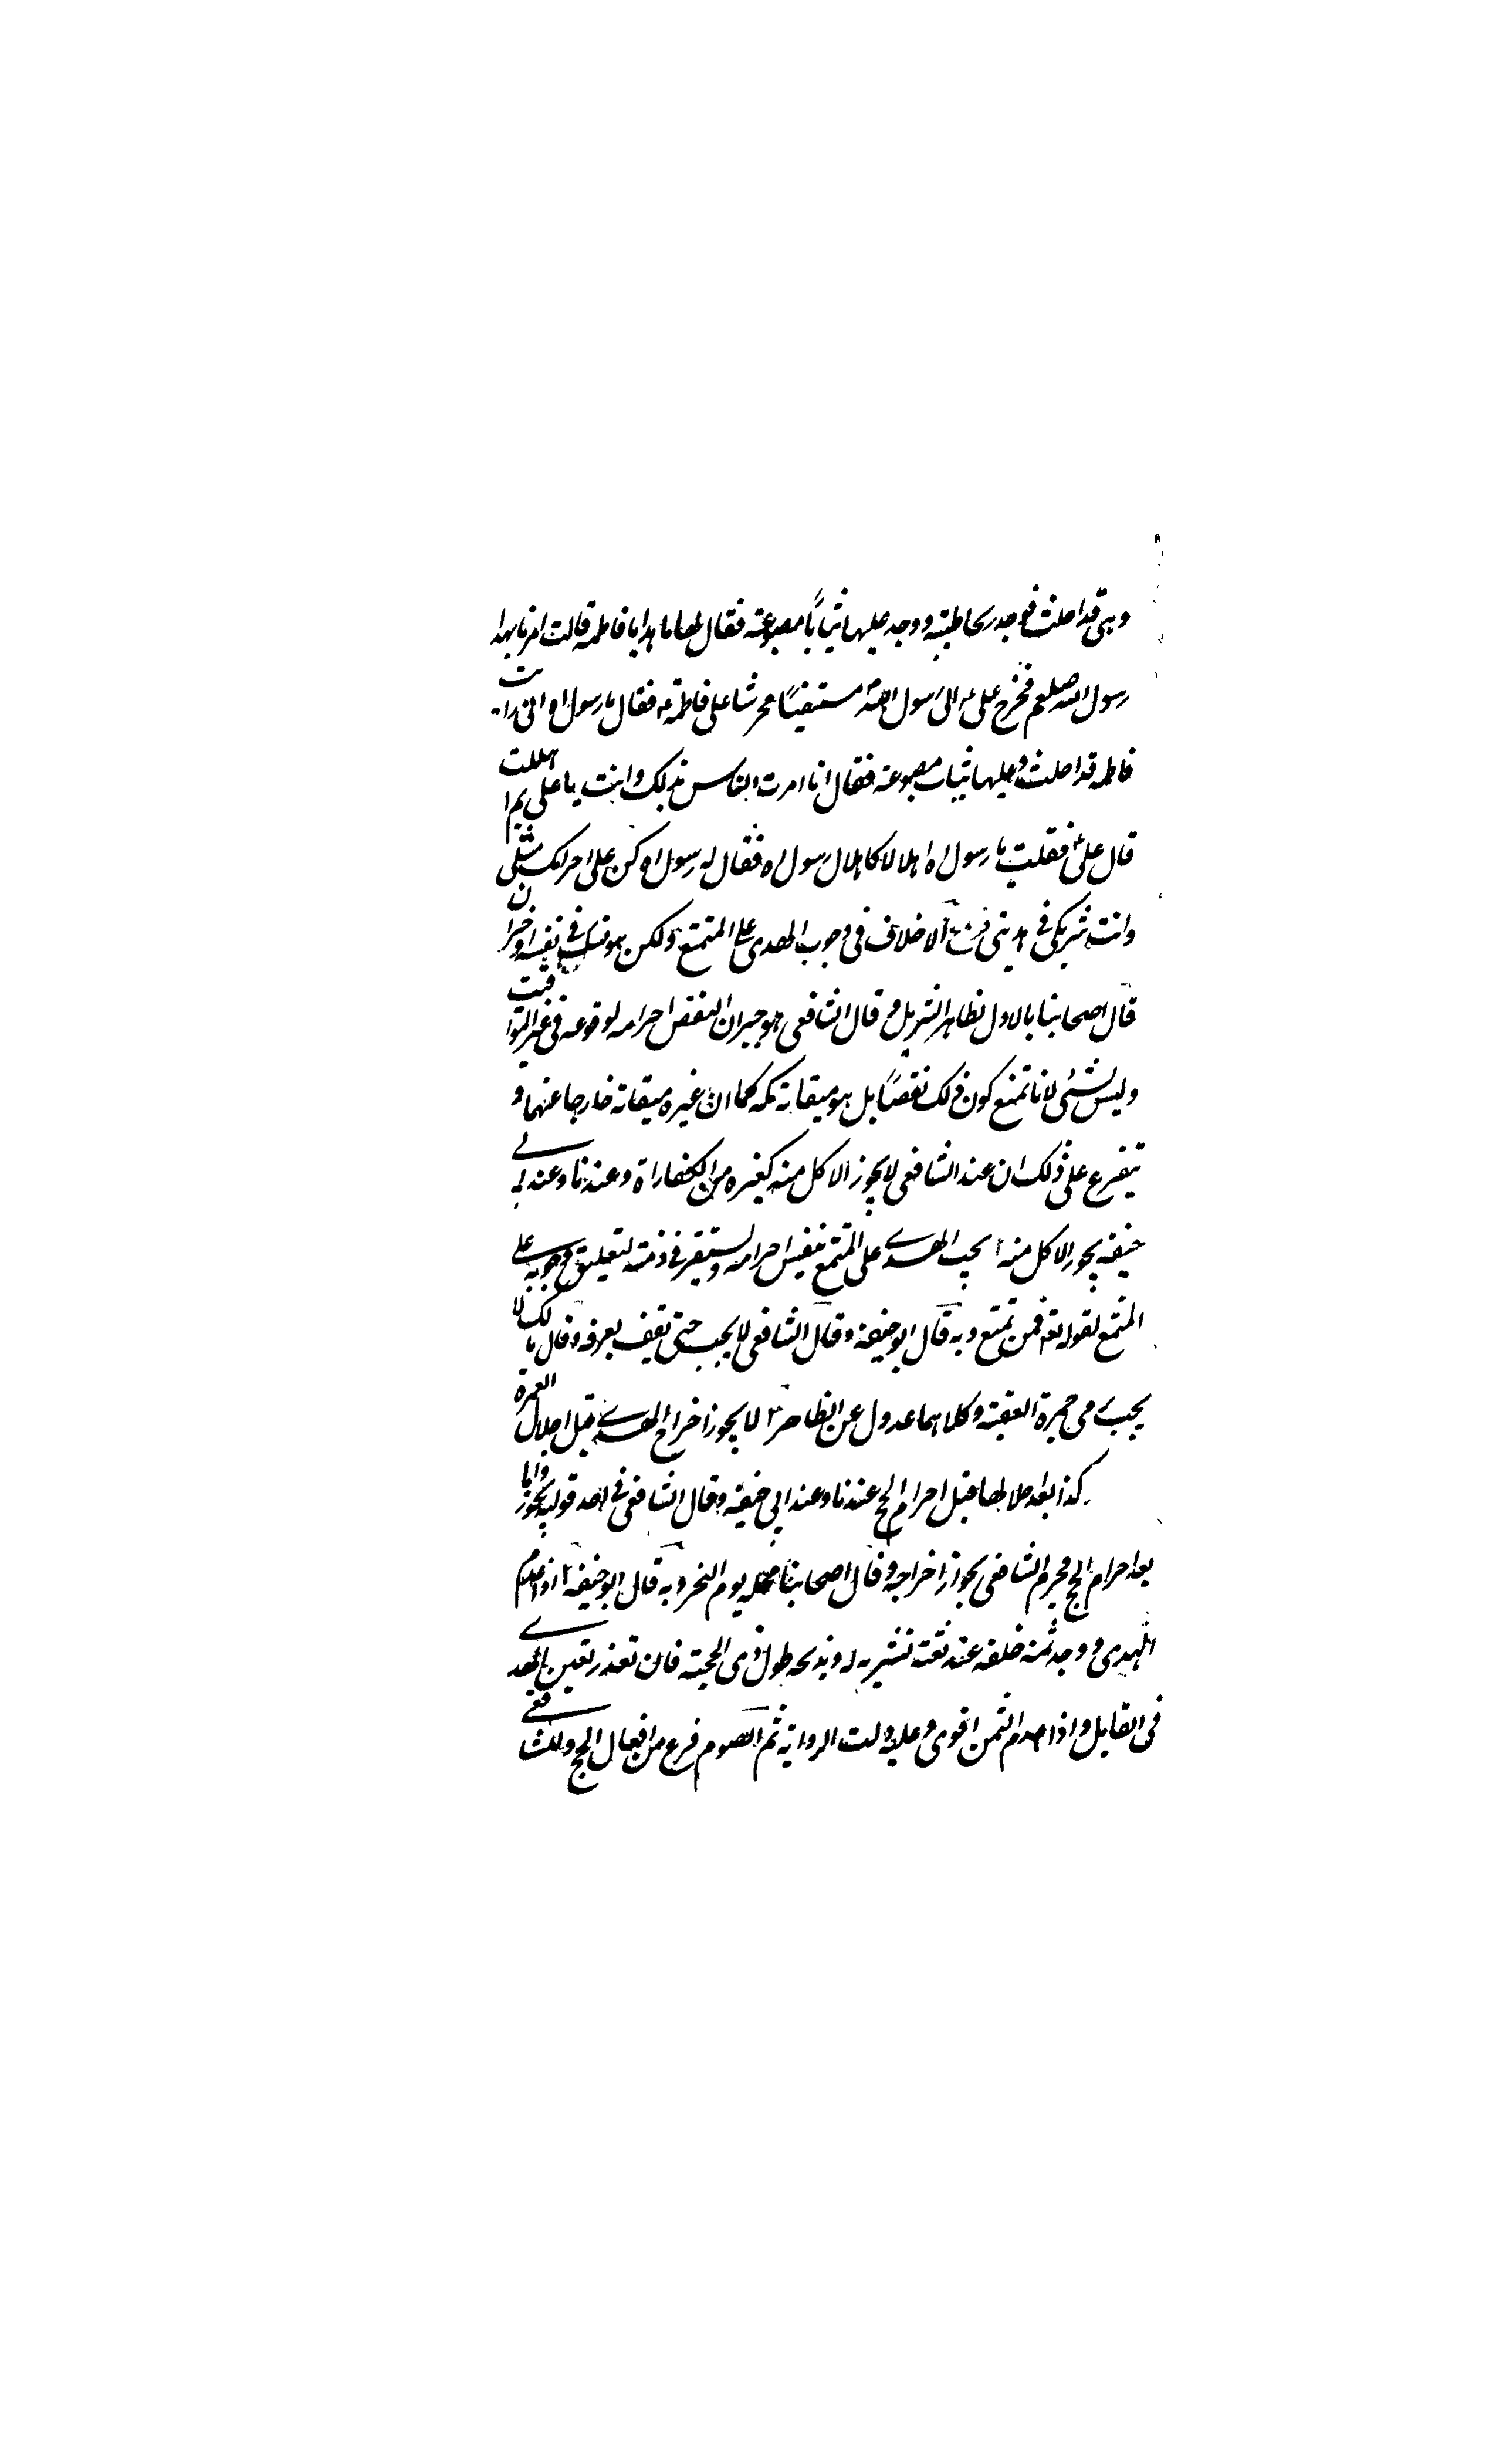 وهی قد احلت فوجد ريحا طيبة ووجد عليها ثيابًا مصبوغة فقال لها ما هذا يا فاطمة قالت امرنا بهذا
رسول الله صلعم فخرج علی ع الی رسول الله ص مستفتيًا محرشا علی فاطمة ع فقال يا رسول الله انی رايت
فاطمة قد احلت وعليها ثياب مصبوغة فقال انا امرت الناس بذلك وانت يا علی بم اهللت
قال علی ع فقلت يا رسول الله اهلالا كاهلال رسول الله فقال له رسول الله كن علی احرامك مثلی
وانت شريكی فی هديی لا خلاف فی وجوب الهدی علی المتمتع ولكن هو نسك فی نفسه او جبران
قال اصحابنا بالاول لظاهر التنزيل وقال الشافعی هو جبران لنقص احرامه لوقوعه فی غير المواقيت
وليس بشئ لانا نمنع كون ذلك نقصًا بل هو ميقاته مكه كما ان غيره ميقاته خارجا عنها و
يتفرع علی ذلك ان عند الشافعی لا يجوز الاكل منه كغيره من الكفارات وعندنا وعند ابی
حنيفه يجوز الاكل منه يجب الهدی علی المتمتع بنفس احرامه ويستقر فی ذمته لتعليق وجوبه علی
المتمتع لقوله تع فمن تمتع وبه قال ابو حنيفه وقال الشافعی لا يجب حتی يقف بعرفه وقال مالك لا
يجب يرمی جمرة العقبة وكلاهما عدول عن الظاهر لا يجوز اخراج الهدی قبل احلال العمرة
كذا بعد احلالها قبل احرام الحج عندنا وعند ابی حنيفه وقال الشافعی فی احد قوليه يجوز واما
بعد احرام الحج فجزم الشافعی بجواز اخراجه وقال اصحابنا محله يوم النحر وبه قال ابو حنيفه اذا عدم
الهدی ووجد ثمنه خلفه عند ثقة يشتريه له ويذبحه طول ذی الحجة فان تعذر تعين الهدی
فی القابل واذا عدم الثمن اقوی وعليه دلت الرواية ثم الصوم فرع من افعال الحج وللشافعی